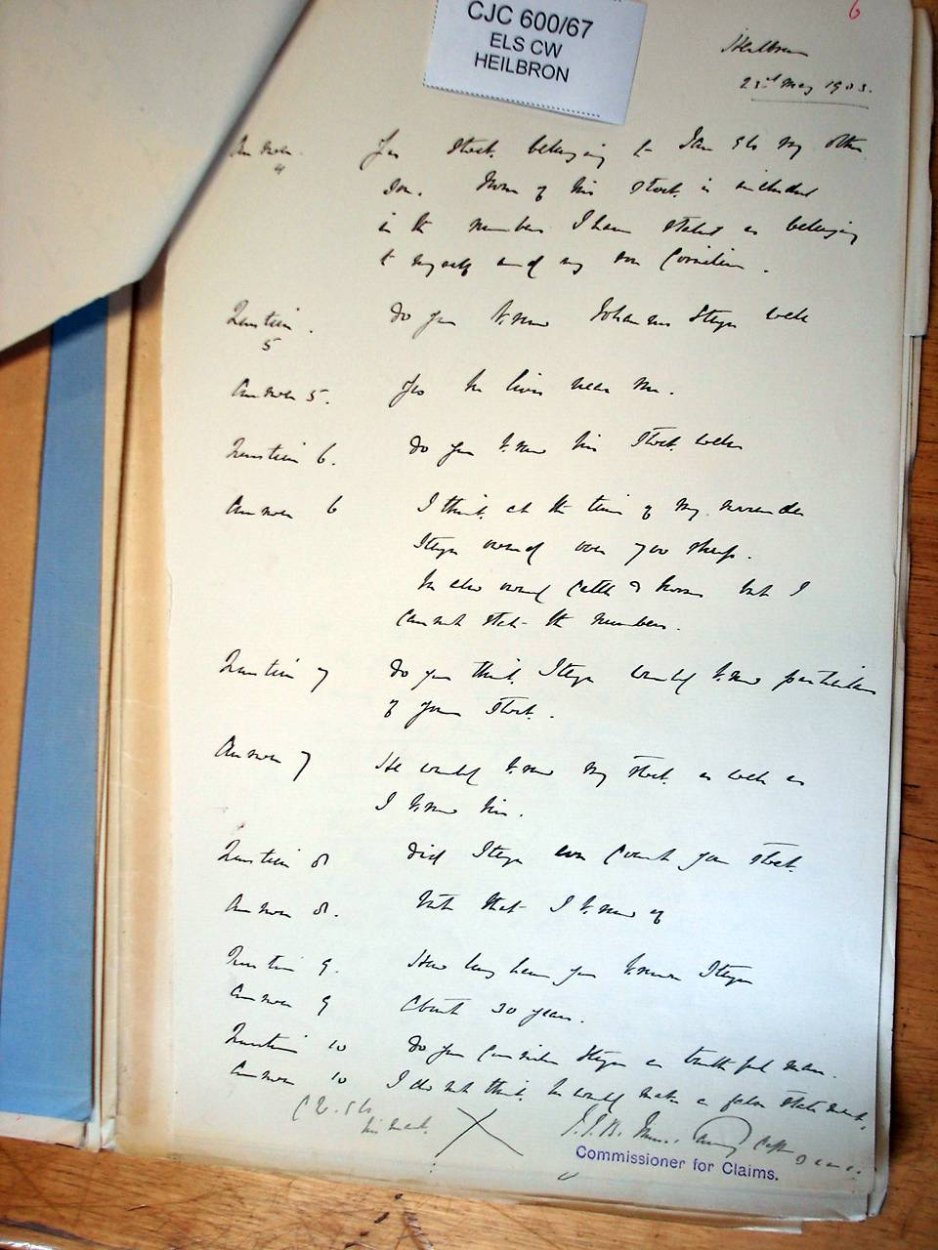 6
CJC 600/67
ELS CW
HEILBRON
Heilbron
23rd May 1903.
Answer 4 Yes stock belonging to Jan Els my other
son. None of his stock is included
in the numbers I have stated as belonging
to myself and my son Cornelius.
Question 5 Do you know Johannes Steyn well
Answer 5. Yes he lives near me.
Question 6. Do you know his stock well
Answer 6 I think at the time of my surrender
Steyn owned over 700 sheep.
He also owned cattle & horses but I
cannot state the numbers.
Question 7 Do you think Steyn would know particulars
of your stock.
Answer 7 He would know my stock as well as
I know his.
Question 8 Did Steyn ever count your stock
Answer 8. Not that I know of
Question 9. How long have you known Steyn
Answer 9 About 30 years.
Question 10 Do you consider Steyn a truthful man.
Answer 10 I do not think he would make a false statement.
C W. Els
his mark. X
Capt
Commissioner for Claims.